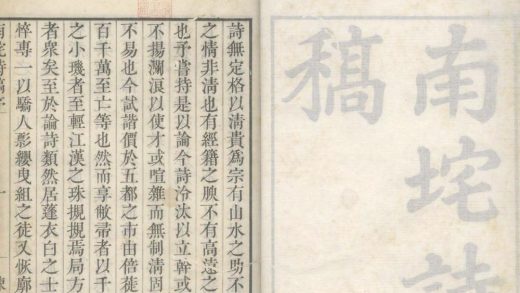 南垞詩
稿
詩無定格以清貴爲宗有山水之助不
之情非清也有經籍之腴不有高遠之
也予嘗持是以論今詩泠汰以立幹或
不揚瀾以使才或喧雜而無制清固
不易也今試諧價於五都之市由倍蓰
百千萬至亡等也然而享敝帚者以千
之小璣者至輕江漢之珠摫摫焉局方
者衆矣至於論詩類然居蓬衣白之士
專一以驕人影纓曳組之徒又恢廓
南垞詩稿序 一